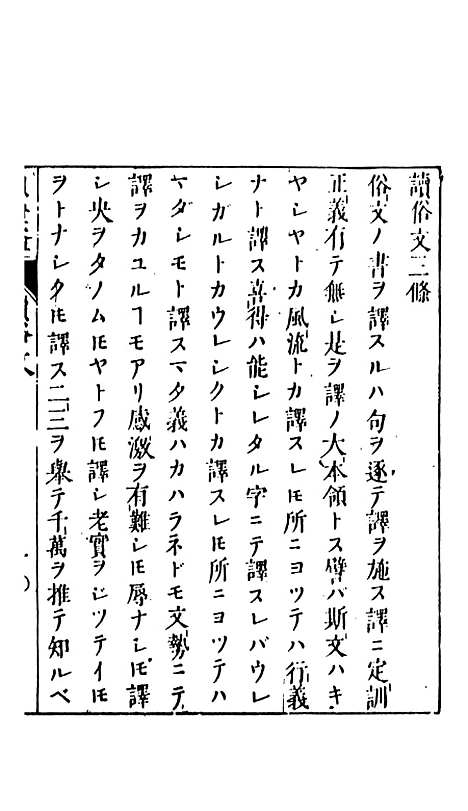 讀俗文三條
俗文ノ書ヲ譯スルハ句ヲ逐テ譯ヲ施ス譯ニ定訓
正義有テ無シ是ヲ譯ノ大本領トス譬バ斯文ハキ
ヤシヤトカ風流トカ譯スレ𪜈所ニヨツテハ行義
ナト譯ス喜得ハ能シレタル字ニテ譯スレバウレ
シガルトカウレシクトカ譯スレ𪜈所ニヨツテハ
マダシモト譯スマタ義ハカハラネドモ文勢ニテ
譯ヲカユルヿモアリ感激ヲ有難シ𪜈辱ナシ𪜈譯
シ央ヲタノムモヤトフ𪜈譯シ老實ヲシツテイ𪜈
ヲトナシク𪜈譯ス二三ヲ擧テ千萬ヲ推テ知ルベ